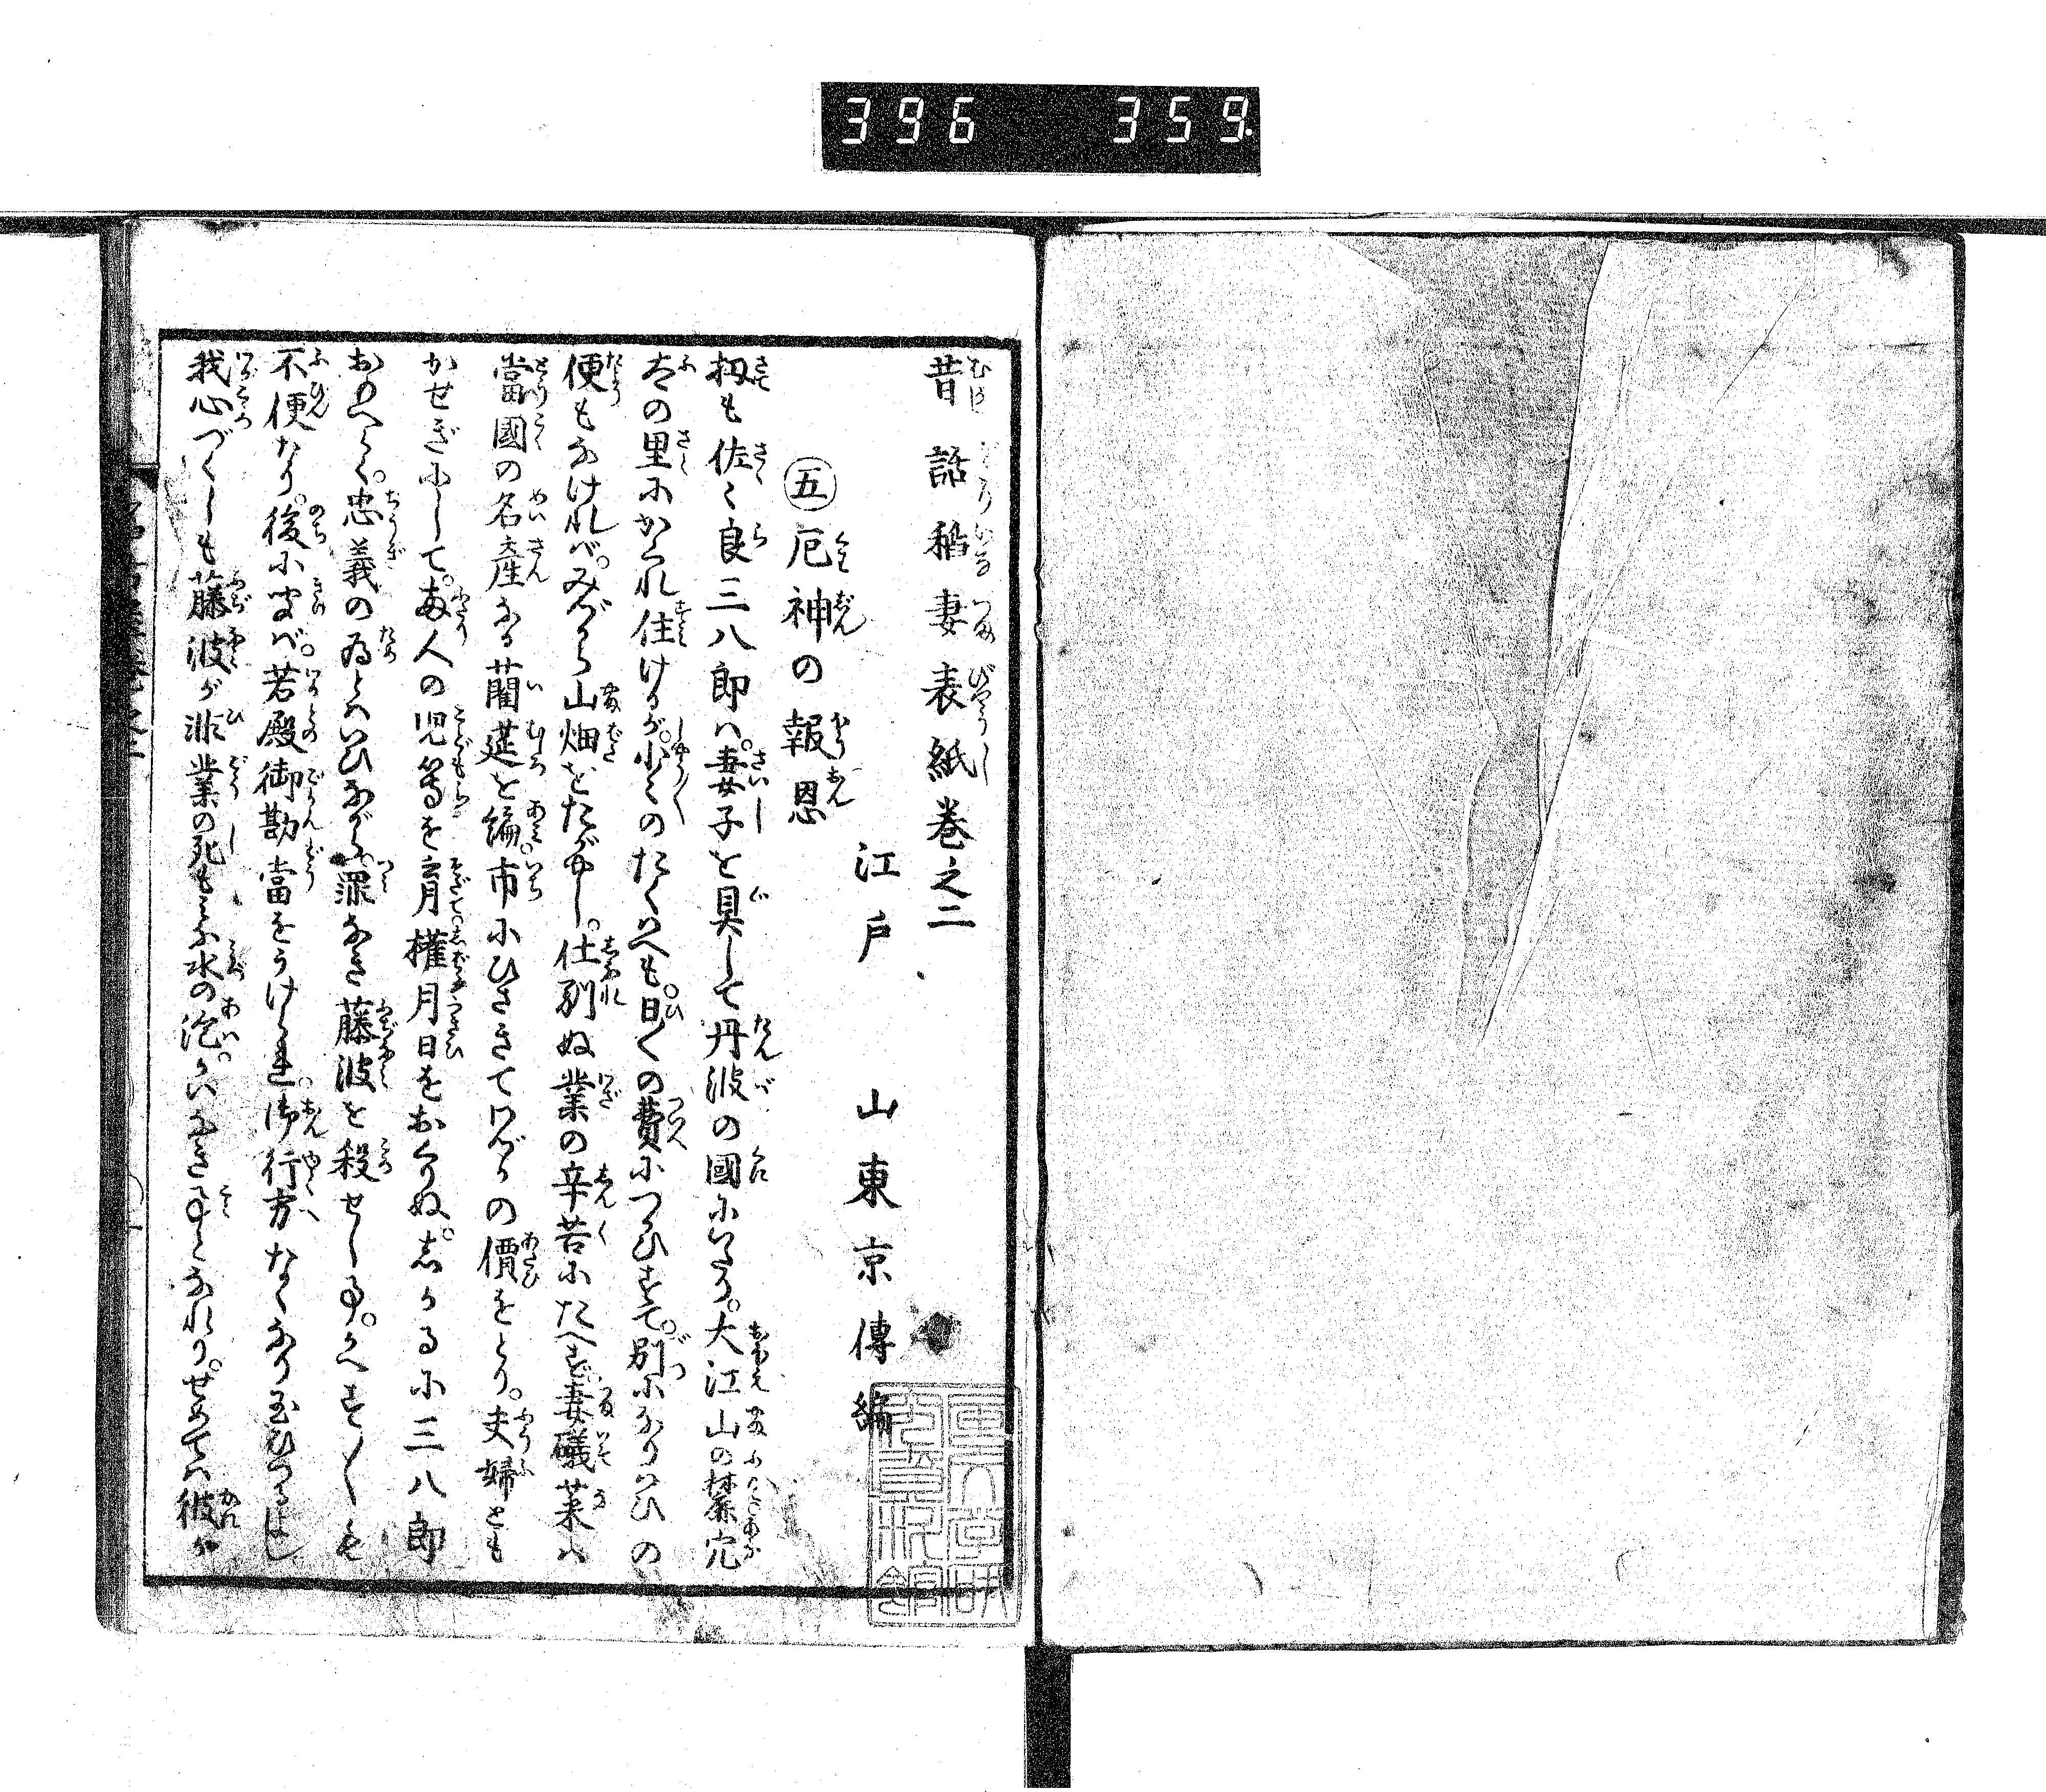 396 359.
昔話稲妻表紙巻之二
江戸 山東京傳編
㊄厄神の報恩
扨も佐々良三八郎ハ。妻子を具して丹波の國にいたり。大江山の麓穴
太の里にかくれ住けるが。少々のたくはへも。日〱の費につひえて。別になりはひの
便もなけれバ。みづから山畑をたがやし。仕馴ぬ業の辛苦にたへず。妻礒菜ハ
當國の名産なる藺莚を編。市にひさきてわづかの價をとり。夫婦とも
かせぎにして。両人の児等を育。権月日をおくりぬ。しかるに三八郎
おもへらく。忠義の為とハいひながら。罪なき藤波を殺せし事。かへす〲も
不便なり。後に聞バ。若殿御勘當をうけられ。御行方なくなり玉ひつるよし
我心づくしも藤波が非業の死も。みな水の泡。かひなき事となれり。せめてハ彼が